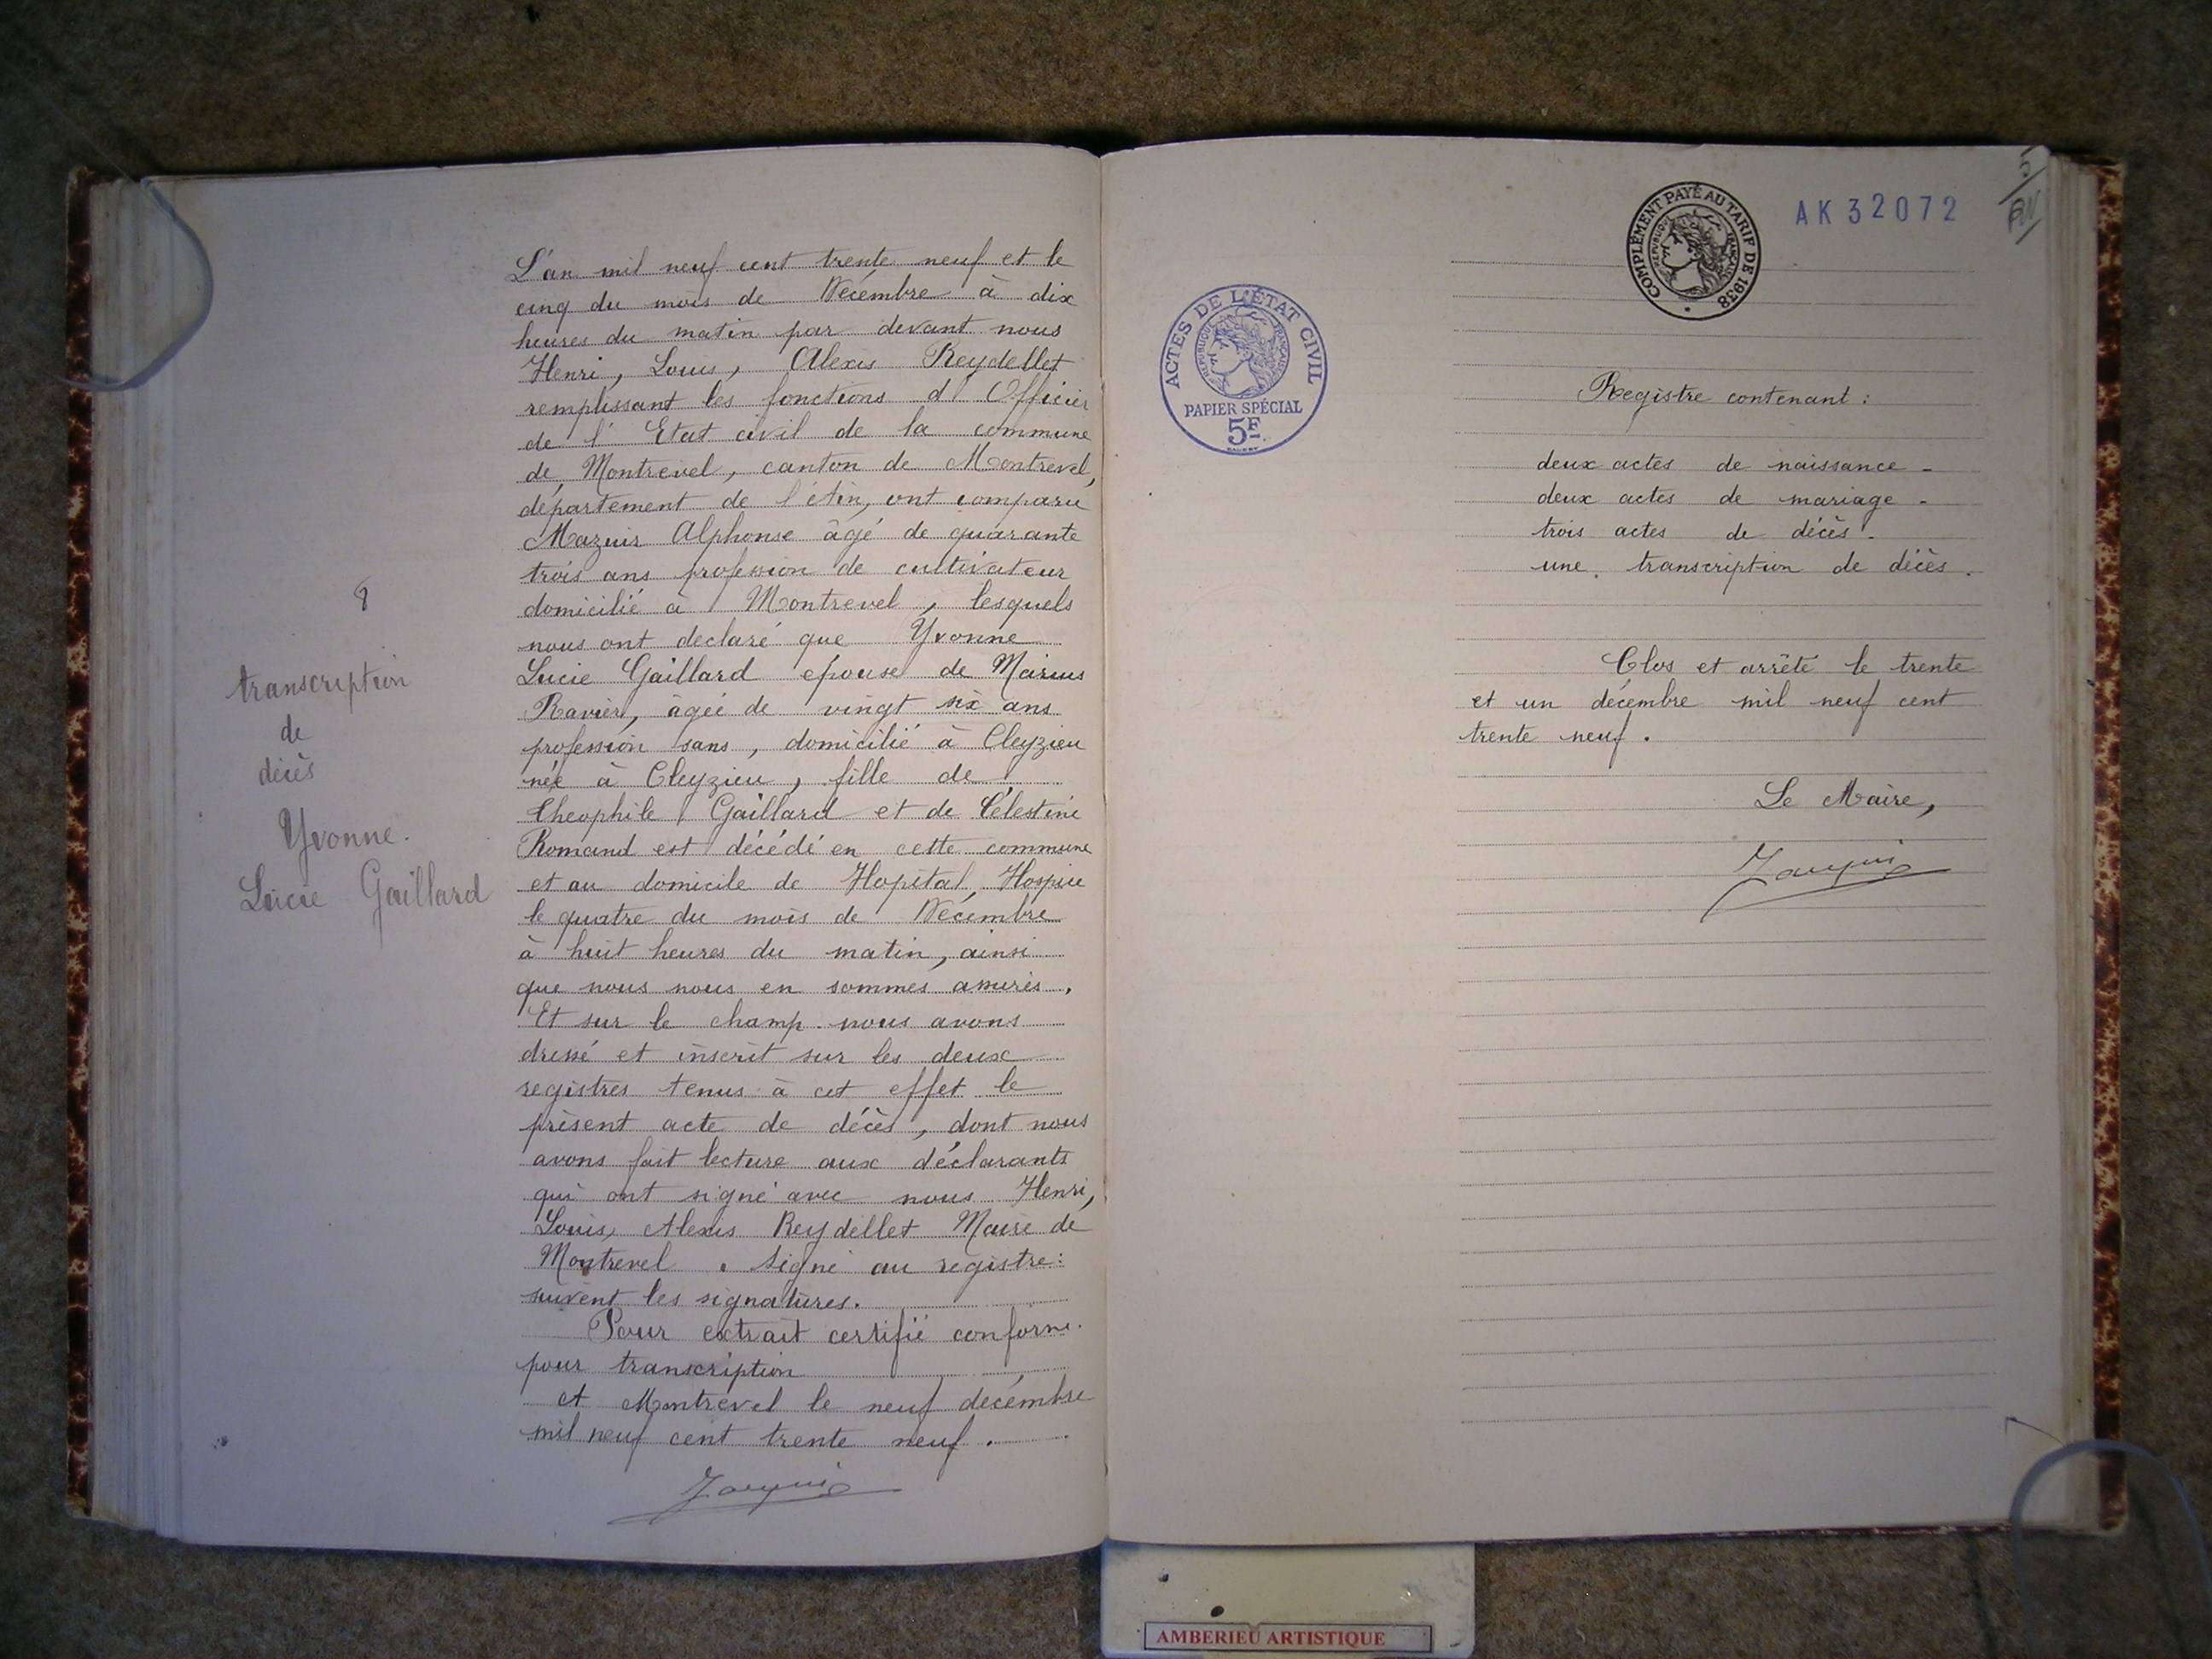 8
transcription
de
décès
Yvonne.
Lucie Gaillard
L'an mil neuf cent trente neuf et le
cinq du mois de Décembre à dix
heures du matin par devant nous
Henri, Louis, Alexis Reydellet
remplissant les fonctions d'Officier
de l'Etat civil de la commune
de Montrevel, canton de Montrevel,
département de l'Ain, ont comparu
Mazuir Alphonse âgé de quarante
trois ans profession de cultivateur
domicilié à Montrevel, lesquels
nous ont declaré que Yvonne
Lucie Gaillard epouse de Marius
Ravier, âgée de vingt six ans
profession sans, domicilié à Cleyzieu
née à Cleyzieu, fille de
Theophile Gaillard et de Célestine
Romand est décédé en cette commune
et au domicile de Hopital Hospice
le quatre du mois de Décembre
à huit heures du matin, ainsi
que nous nous en sommes assurés.
Et sur le champ nous avons
dressé et inscrit sur les deux
registres tenus à cet effet le
présent acte de décès, dont nous
avons fait lecture aux déclarants
qui ont signé avec nous Henri,
Louis, Alexis Reydellet Maire de
Montrevel. Signé au registre:
suivent les signatures.
Pour extrait certifié conforme.
pour transcription
A Montrevel le neuf décembre
mil neuf cent trente neuf.
ACTES DE L'ÉTAT CIVIL
REPUBLIQUE FRANÇAISE
PAPIER SPÉCIAL
5F
COMPLÉMENT PAYÉ AU TARIF DE 1938
REPUBLIQUE FRANÇAISE
AK 32072
5
Registre contenant:
deux actes de naissance -
deux actes de mariage -
trois actes de décès -
une transcription de décès.
Clos et arrêté le trente
et un décembre mil neuf cent
trente neuf.
Le Maire,
AMBERIEU ARTISTIQUE